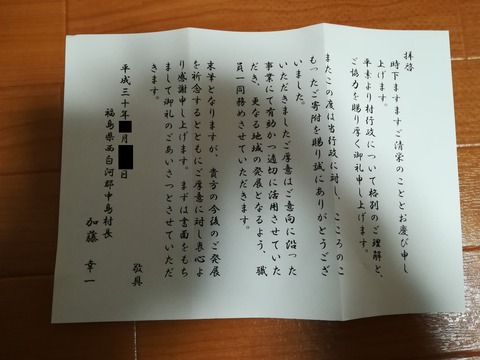 拝啓
時下ますますご清栄のこととお慶び申し
上げます。
平素より村行政について格別のご理解と、
ご協力を賜り厚く御礼申し上げます。
またこの度は当行政に対し、こころのこ
もったご寄附を賜り誠にありがとうござ
いました。
いただきましたご厚意はご意向に沿った
事業にて有効かつ適切に活用させていた
だき、更なる地域の発展となるよう、職
員一同務めさせていただきます。
末筆となりますが、貴方の今後のご発展
を祈念するとともにご厚意に対し衷心よ
り感謝申し上げます。まずは書面をもち
まして御礼のごあいさつとさせていただ
きます。
敬具
平成三十年 月 日
福島県西白河郡中島村長
加藤 幸一